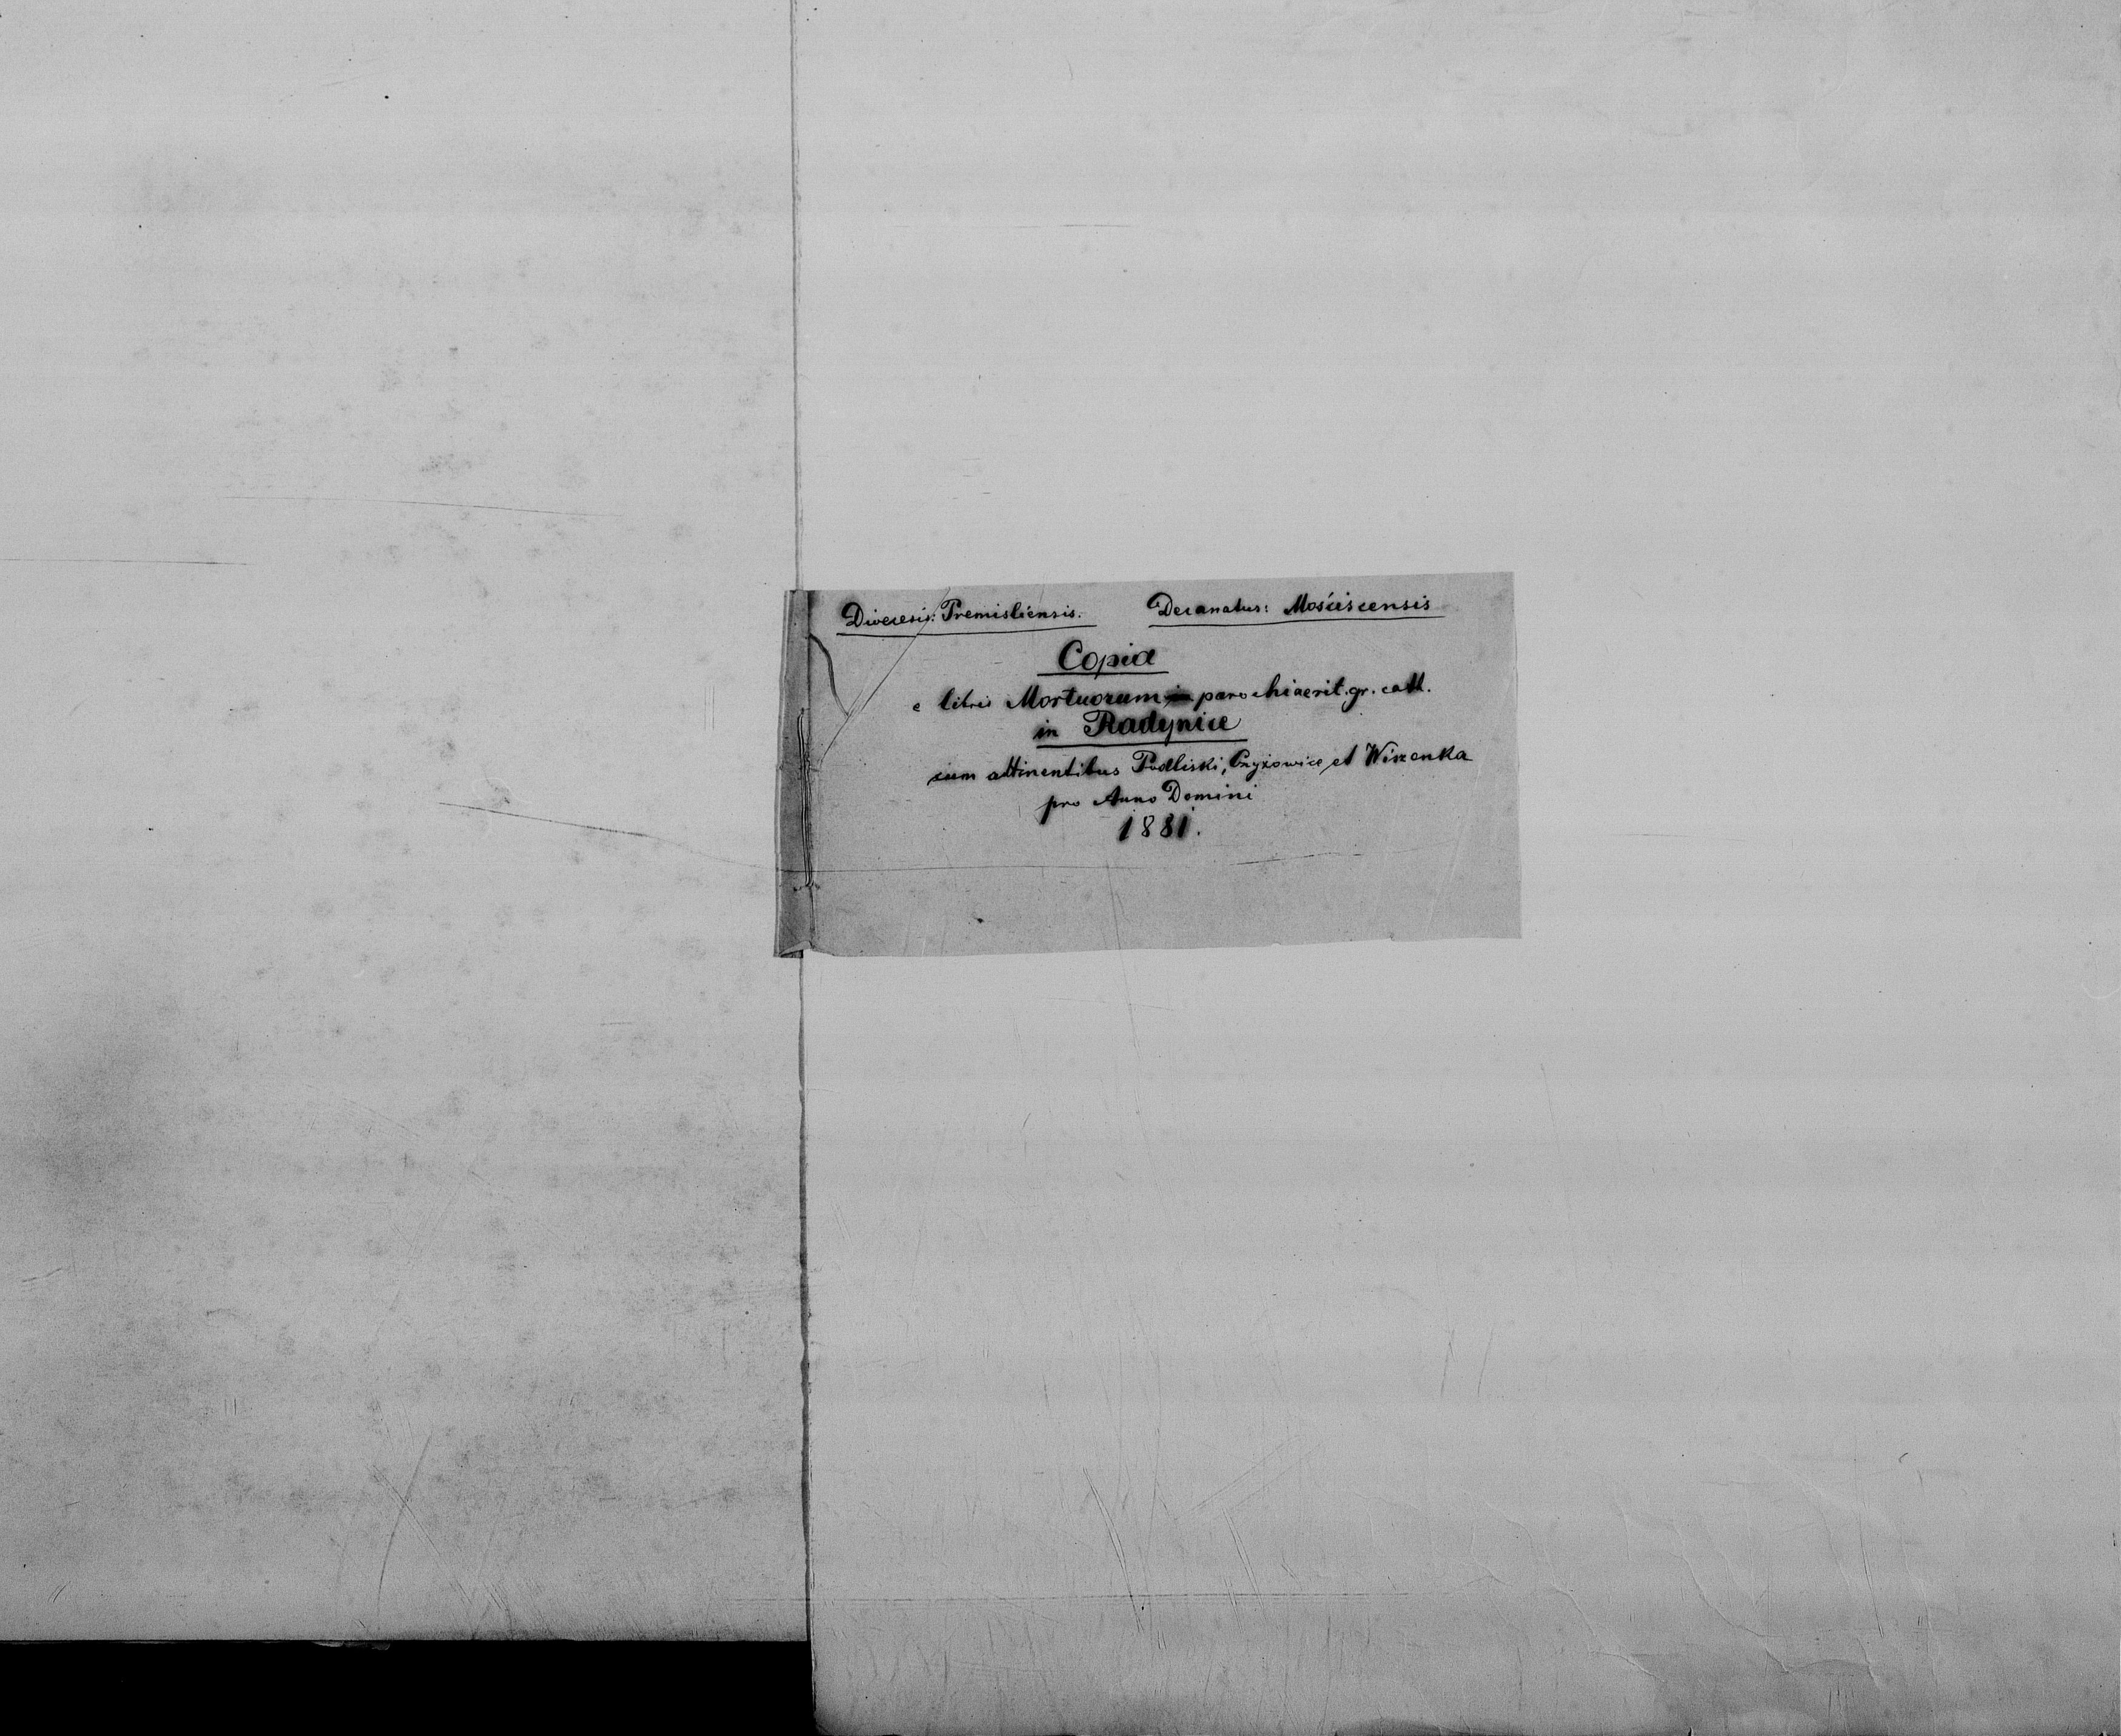 Dioecesis: Premisliensis. Decanatus: Mościscensis
Copia
e libris Mortuorum parochiae rit. gr. cath.
in Radynice
cum attinentibus Podliski, Czyżowice et Wiszenka
pro Anno Domini
1881.